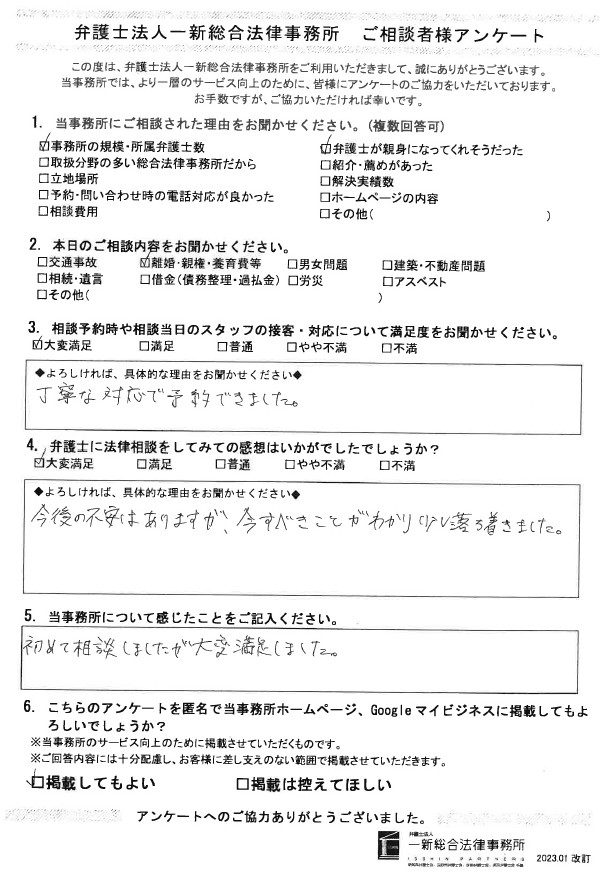 弁護士法人一新総合法律事務所　ご相談者様アンケート
この度は、弁護士法人一新総合法律事務所をご利用いただきまして、誠にありがとうございます。
当事務所では、より一層のサービス向上のために、皆様にアンケートのご協力をいただいております。
お手数ですが、ご協力いただければ幸いです。
1. 当事務所にご相談された理由をお聞かせください。（複数回答可）
☑事務所の規模・所属弁護士数　☑弁護士が親身になってくれそうだった
□取扱分野の多い総合法律事務所だから　□紹介・薦めがあった
□立地場所　□解決実績数
□予約・問い合わせ時の電話対応が良かった　□ホームページの内容
□相談費用　□その他（　）
2. 本日のご相談内容をお聞かせください。
□交通事故　☑離婚・親権・養育費等　□男女問題　□建築・不動産問題
□相続・遺言　□借金（債務整理・過払金）　□労災　□アスベスト
□その他（　）
3. 相談予約時や相談当日のスタッフの接客・対応について満足度をお聞かせください。
☑大変満足　□満足　□普通　□やや不満　□不満
◆よろしければ、具体的な理由をお聞かせください◆
丁寧な対応で予約できました。
4. 弁護士に法律相談をしてみての感想はいかがでしたでしょうか？
☑大変満足　□満足　□普通　□やや不満　□不満
◆よろしければ、具体的な理由をお聞かせください◆
今後の不安はありますが、今すべきことがわかり少し落ち着きました。
5. 当事務所について感じたことをご記入ください。
初めて相談しましたが大変満足しました。
6. こちらのアンケートを匿名で当事務所ホームページ、Google マイビジネスに掲載してもよ
ろしいでしょうか？
※当事務所のサービス向上のために掲載させていただくものです。
※ご回答内容には十分配慮し、お客様に差し支えのない範囲で掲載させていただきます。
☑掲載してもよい　□掲載は控えてほしい
アンケートへのご協力ありがとうございました。
弁護士法人
一新総合法律事務所
ISSHIN PARTNERS
2023.01 改訂